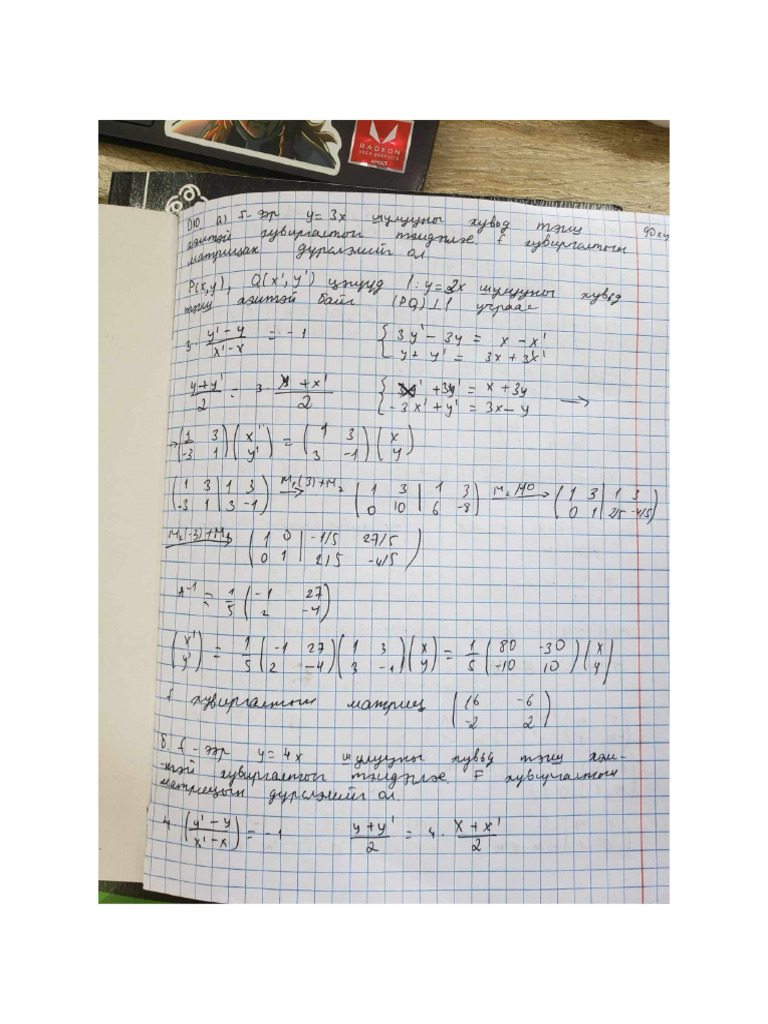 RADEON
VEGA GRAPHICS
AMD
D10 а) f-ээр y=3x шулууны хувьд тэгш 90
хэмтэй хувиргалтыг тэмдэглэе f хувиргалтын
матрицан дүрслэлийг ол.
P(x,y), Q(x',y') цэгүүд l:y=2x шулууны хувьд
тэгш хэмтэй байг (PQ)⊥l учраас
3· (y'-y)/(x'-x) = -1 { 3y'-3y = x-x'
y+y' = 3x+3x'
(y+y')/2 = 3· (x+x')/2 { x'+3y' = x+3y
-3x'+y' = 3x-y →
→ (1 3; -3 1)(x'; y') = (1 3; 3 -1)(x; y)
(1 3 | 1 3; -3 1 | 3 -1) M₁(3)+M₂ → (1 3 | 1 3; 0 10 | 6 -8) M₂/10 → (1 3 | 1 3; 0 1 | 2/5 -4/5)
M₂(-3)+M₁ → (1 0 | -1/5 27/5; 0 1 | 2/5 -4/5)
A⁻¹ = 1/5 (-1 27; 2 -4)
(x'; y') = 1/5 (-1 27; 2 -4)(1 3; 3 -1)(x; y) = 1/5 (80 -30; -10 10)(x; y)
f хувиргалтын матриц (16 -6; -2 2)
б. f-ээр y=4x шулууны хувьд тэгш хэм-
-тэй хувиргалтыг тэмдэглэе. F хувиргалтын
матрицын дүрслэлийг ол.
4· ((y'-y)/(x'-x)) = -1 (y+y')/2 = 4· (x+x')/2